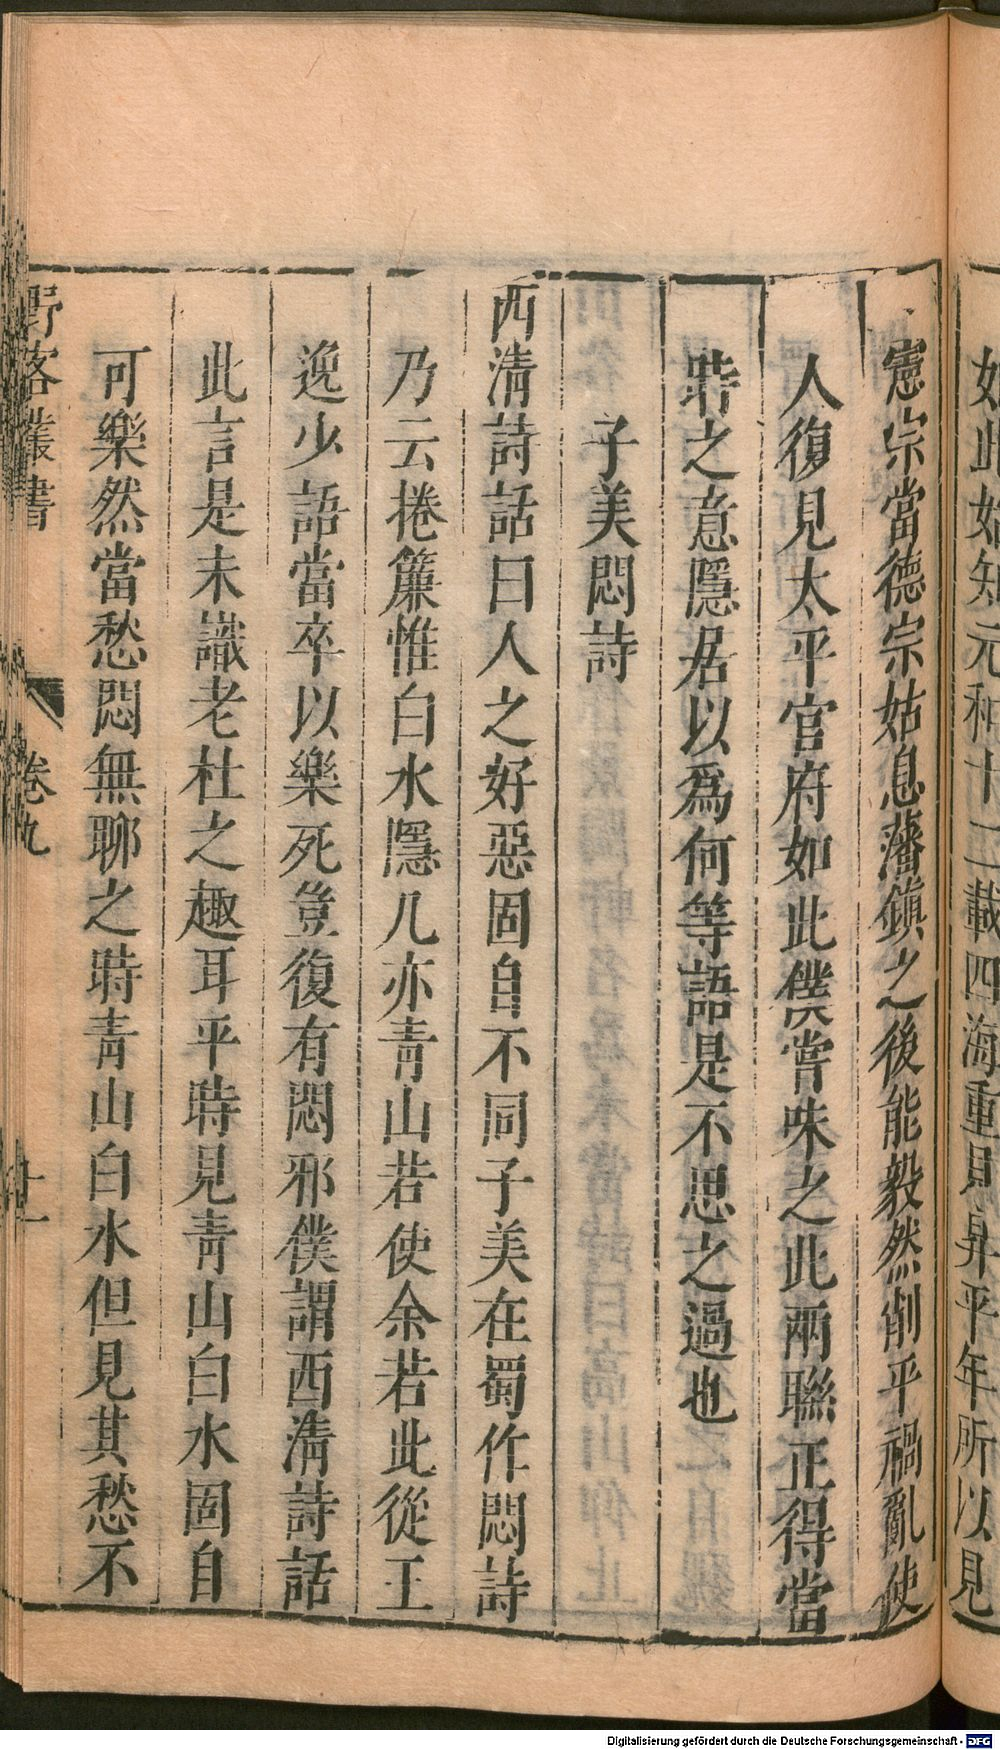 如此如知元和十二載四海重見昇平年所以見
憲宗當德宗姑息藩鎮之後能毅然削平禍亂使
人復見太平官府如此僕嘗味之此兩聯正得當
時之意隱居以爲何等語是不思之過也
子美悶詩
西清詩話曰人之好惡固自不同子美在蜀作悶詩
乃云捲簾惟白水隱几亦青山若使余若此從王
逸少語當卒以樂死豈復有悶邪僕謂西清詩話
此言是未識老杜之趣耳平時見青山白水固自
可樂然當愁悶無聊之時青山白水但見其愁不
野客叢書 卷九 十一
Digitalisierung gefördert durch die Deutsche Forschungsgemeinschaft - DFG